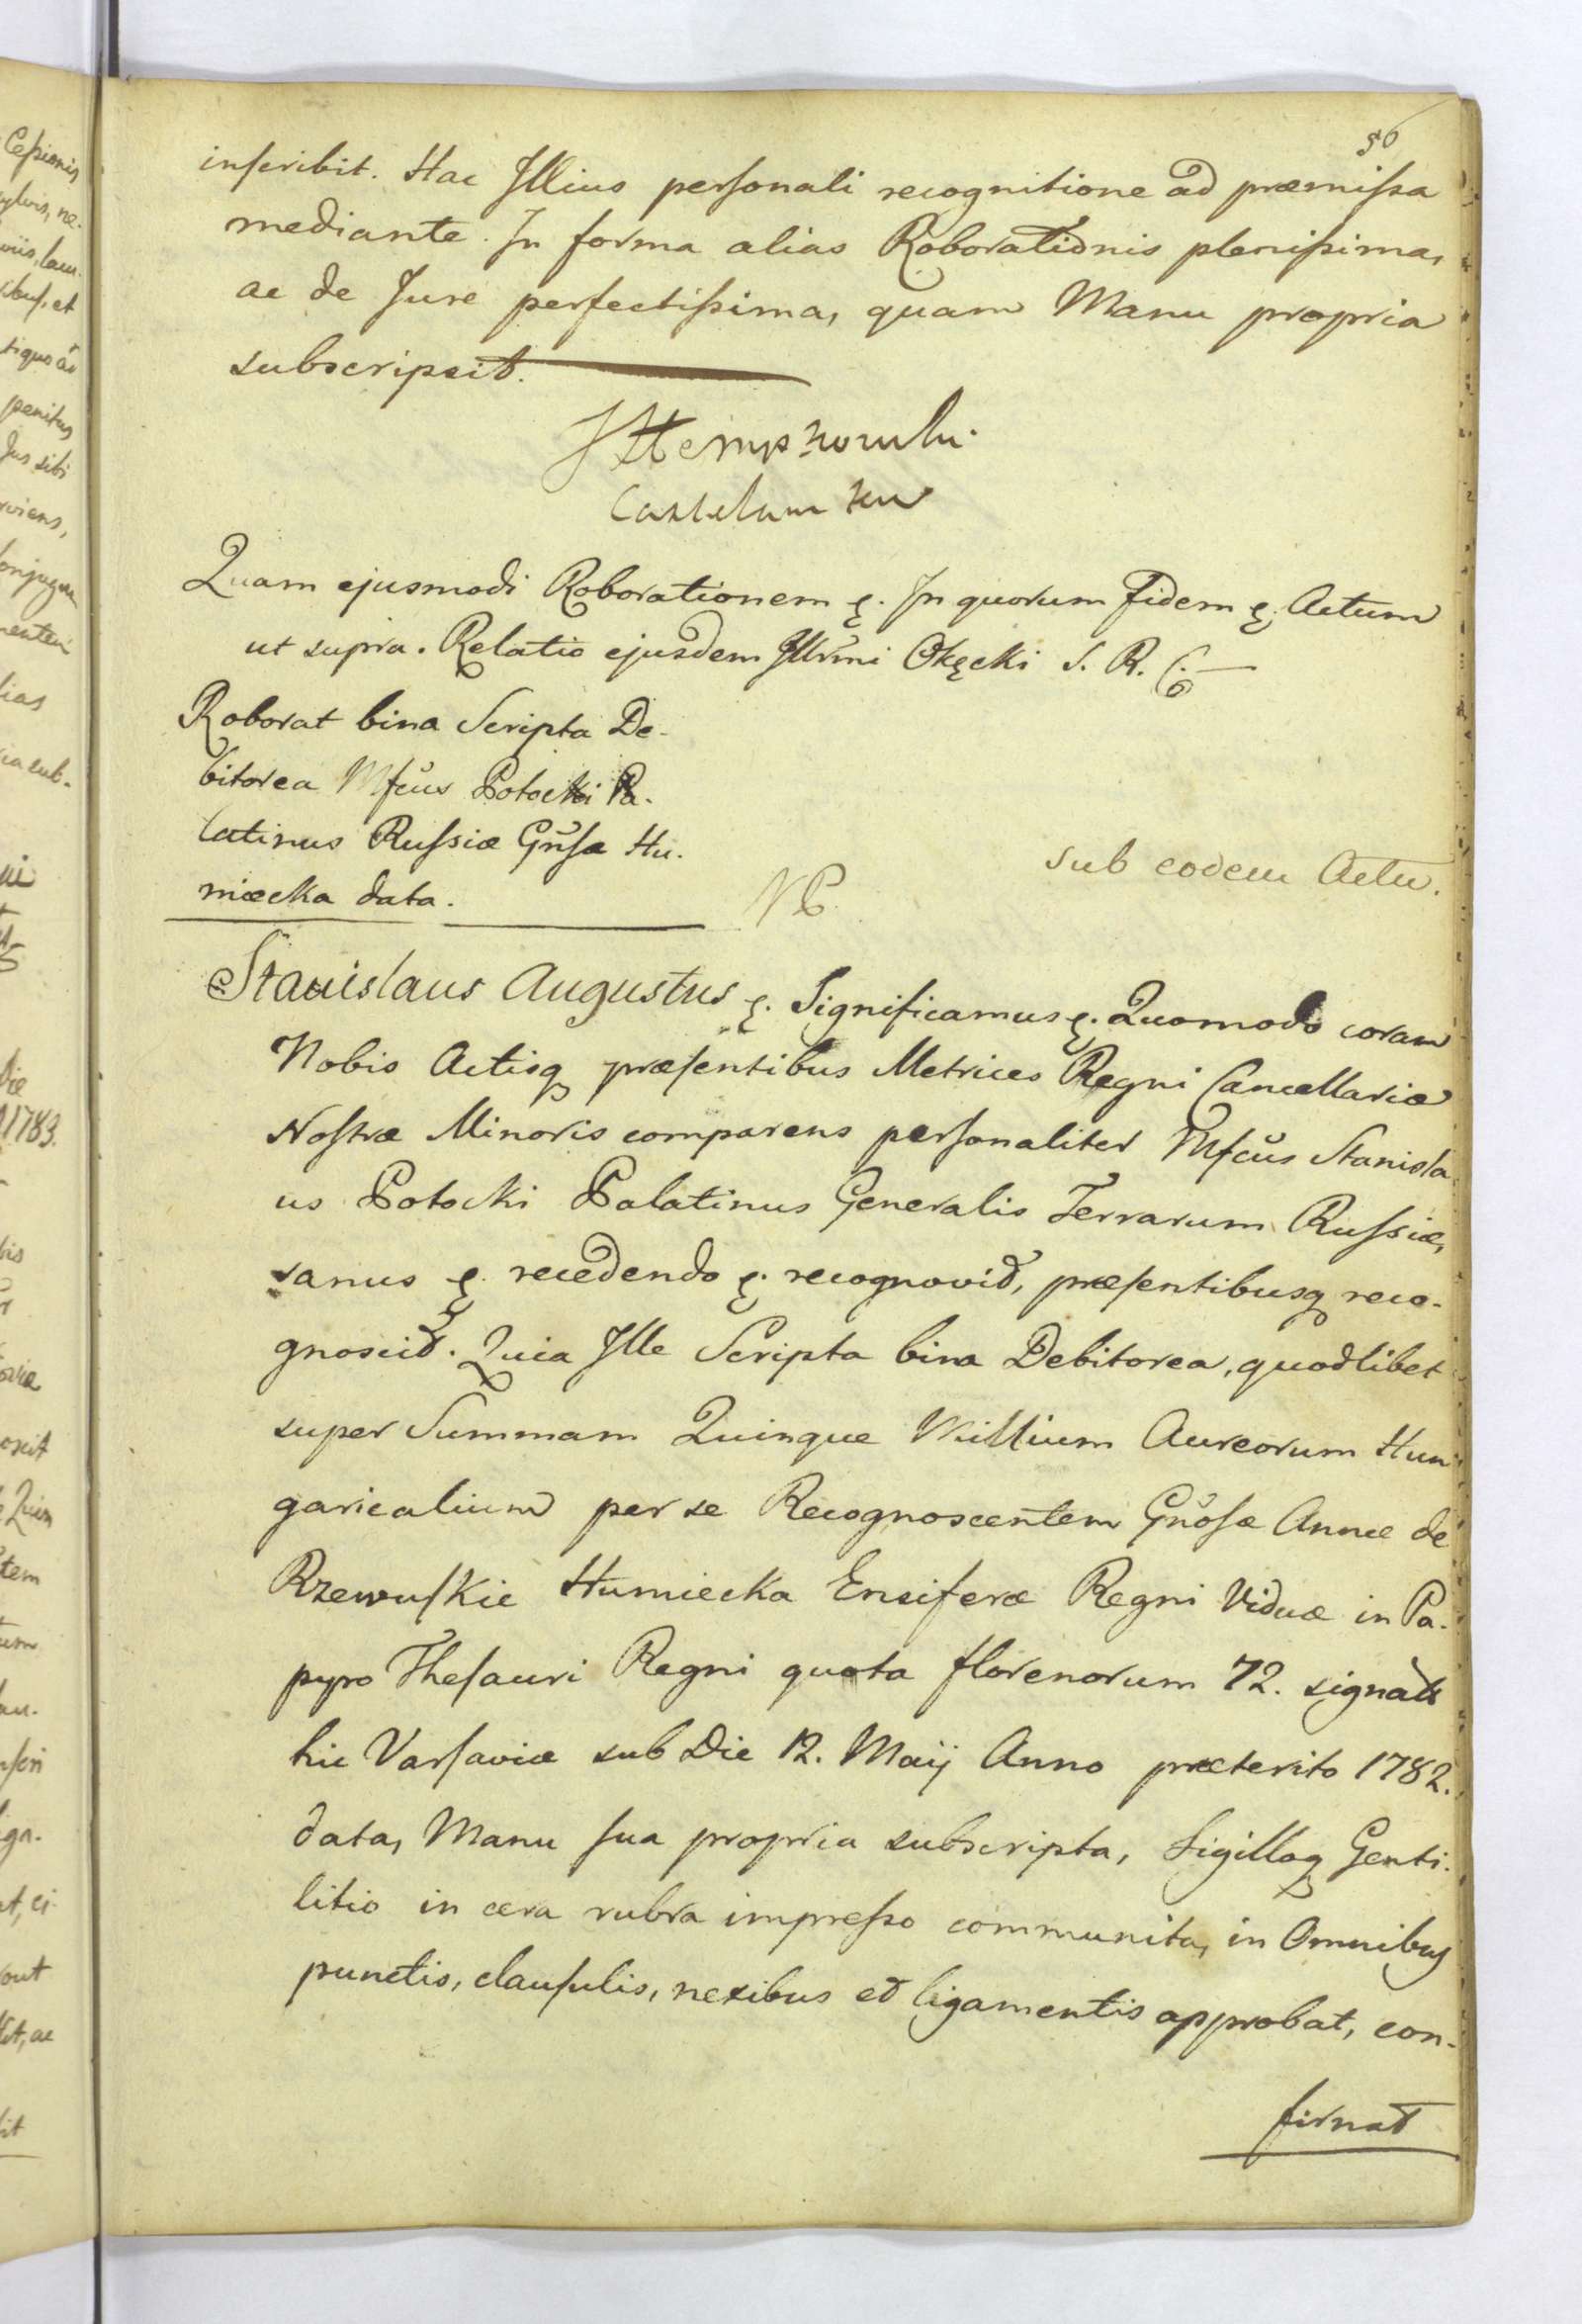 50
inscribit. Hac Illius personali recognitione ad præmissa
mediante. In forma alias Roborationis plenissima,
ac de Jure perfectissima, quam Manu propria
subscripsit.
Quam ejusmodi Roborationem ę. In quorum fidem ę. Actum
ut supra. Relatio ejusdem Illrmi Okęcki S. R. C.
Roborat bina Scripta De-
bitorea Mfcus Potocki Pa-
latinus Russiæ Gnsæ Hu-
miecka data.
NP.
sub eodem Actu.
Stanislaus Augustus ę. Significamus ę. Quomodo coram
Nobis Actisq præsentibus Metrices Regni Cancellariæ
Nostræ Minoris comparens personaliter Mfcus Stanisla
us Potocki Palatinus Generalis Terrarum Russiæ,
sanus ę. recedendo ę. recognovit, præsentibusq reco-
gnoscit. Quia Ille Scripta bina Debitorea, quodlibet
super Summam Quinque Millium Aureorum Hun
garicalium per se Recognoscentem Gnosæ Annæ de
Rzewuskie Humiecka Ensiferæ Regni Viduæ in Pa-
pyro Thesauri Regni quota florenorum 72. signato
hic Varsaviæ sub Die 12. Maij Anno præterito 1782.
data, Manu sua propria subscripta, Sigilloq Genti-
litio in cera rubra impresso communita, in Omnibus
punctis, clausulis, nexibus et ligamentis approbat, con-
firmat